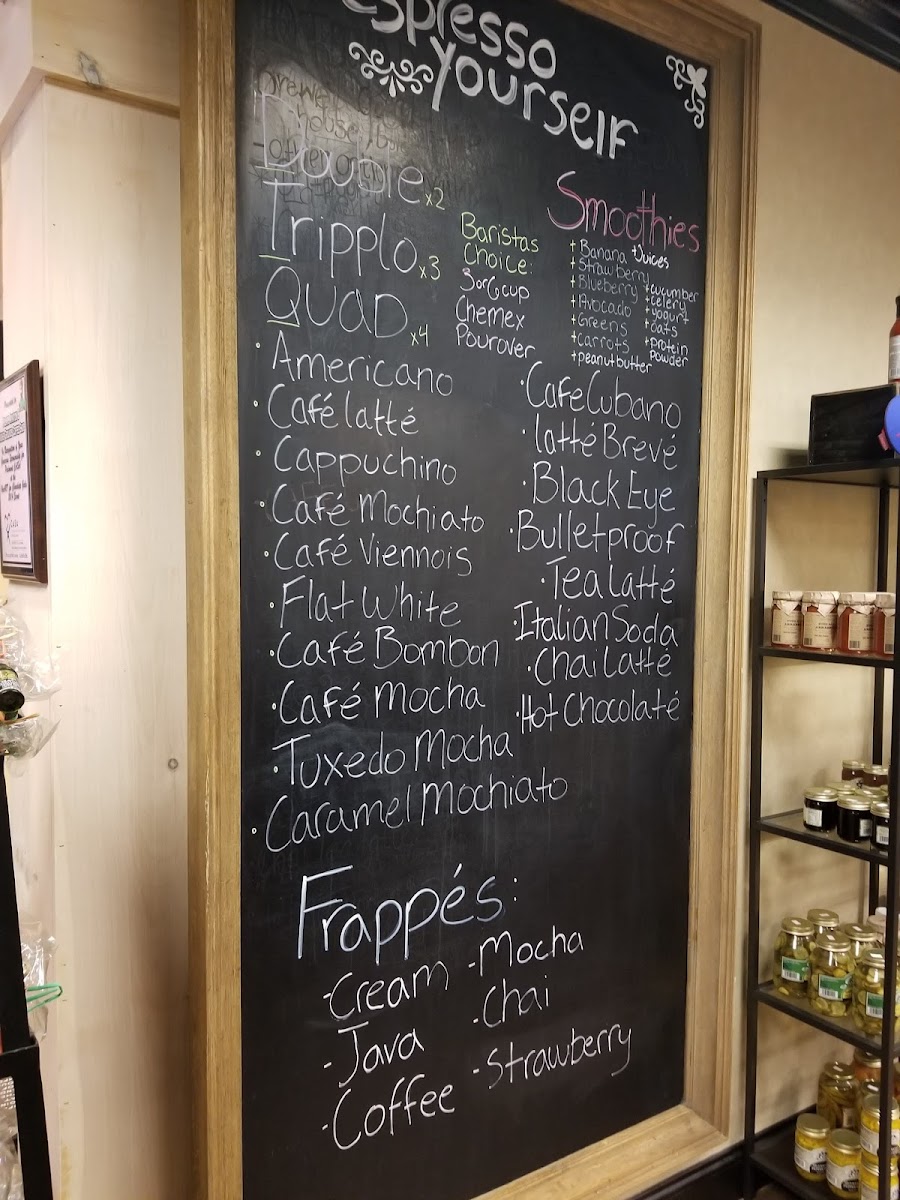 Espresso
Yourself
Brewed
house
Double x2
Tripplo x3
Quad x4
Baristas
Choice:
3 or 6 cup
Chemex
Pourover
Smoothies
+Banana +Juices
+Strawberry
+Blueberry
+Avocado
+Greens
+Carrots
+peanutbutter
+cucumber
+celery
+yogurt
+oats
+protein
powder
·Americano
·Café latté
·Cappuchino
·Café Mochiato
·Café Viennois
·Flat White
·Café Bombon
·Café Mocha
·Tuxedo Mocha
·Caramel Mochiato
·Cafe Cubano
·latté Brevé
·Black Eye
·Bulletproof
·Tea Latté
·Italian Soda
·Chai Latté
·Hot Chocolaté
Frappés:
-Cream
-Java
-Coffee
-Mocha
-Chai
-Strawberry